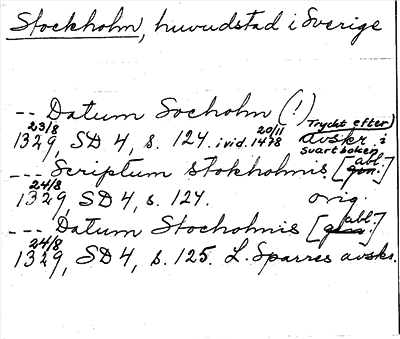 Stockholm, huvudstad i Sverige
-- Datum Stocholm (!) Tryckt efter)
23/8 1329, SD 4, s. 124. i vid. 20/11 1478 avskr. i svartboken
--- Scriptum stokholmis [gen. abl.]
24/8 1329, SD 4, s. 127. orig.
--- Datum Stocholmis [gen. abl.]
24/8 1329, SD 4, s. 125. L. Sparres avskr.